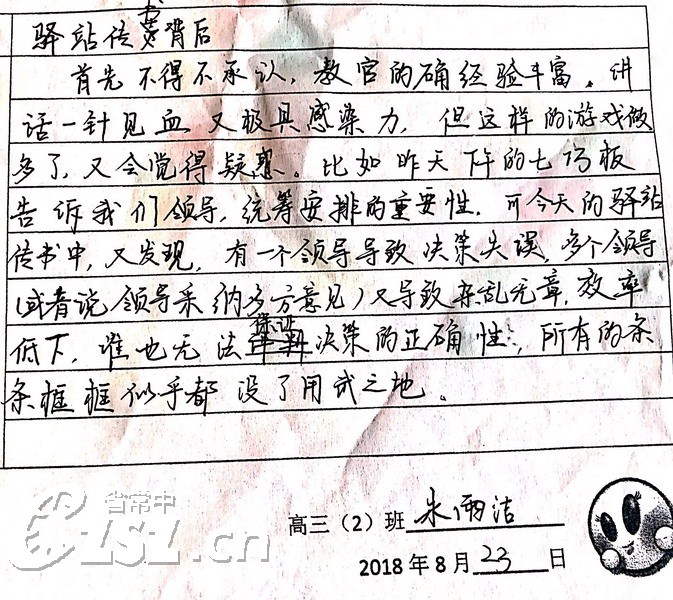 驿站传书背后
首先不得不承认，教官的确经验丰富，讲
话一针见血又极具感染力，但这样的游戏做
多了，又会觉得疑惑。比如昨天下午的七巧板
告诉我们领导，统筹安排的重要性，可今天的驿站
传书中，又发现，有一个领导导致决策失误，多个领导
（或者说领导采纳多方意见）又导致杂乱无章，效率
低下，谁也无法保证决策的正确性，所有的条
条框框似乎都没了用武之地。
高三（2）班 朱俪洁
2018年8月23日
省常中
CZSZ.cn